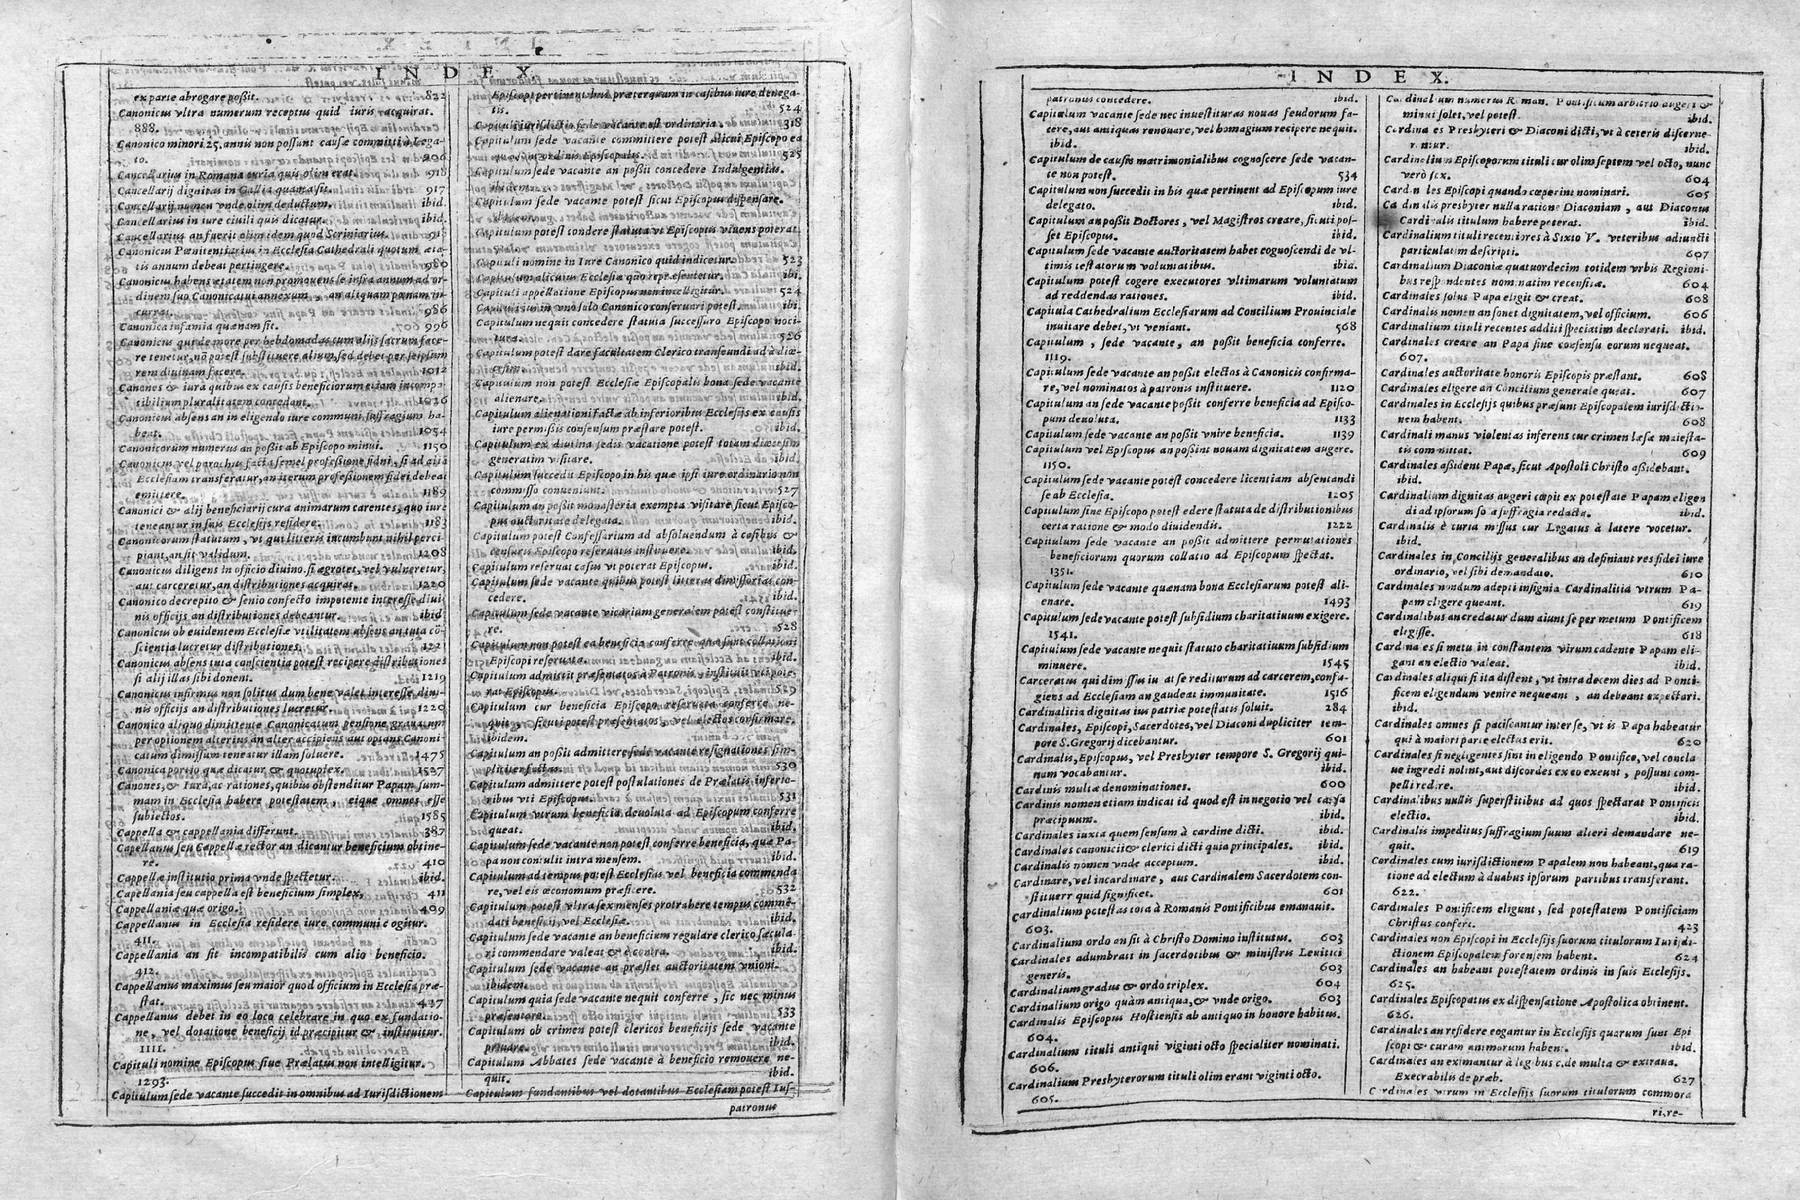 INDEX.
ex parte abrogare poßit. 822
Canonicus vltra numerum receptus quid iuris acquirat.
888.
Canonico minori 25. annis non possunt causæ committi à Lega-
to. 906
Cancellarius in Romana curia quis olim erat. 918
Cancellarij dignitas in Gallia quanta sit. 917
Cancellarij nomen vnde olim deductum. ibid.
Cancellarius in iure ciuili quis dicatur. ibid.
Cancellarius an fuerit olim idem quod Scriniarius. 918
Canonicus Pœnitentiarius in Ecclesia Cathedrali quotum æta-
tis annum debeat pertingere. 980
Canonicus habens ætatem non promouens se infra annum ad or-
dinem suo Canonicatui annexum, an aliquam pœnam in-
currat. 986
Canonica infamia quænam sit. 996
Canonicus qui de more per hebdomadas cum alijs sacrum face-
re tenetur, nō potest substituere alium, sed debet per seipsum
rem diuinam facere. 1012
Canones & iura quibus ex causis beneficiorum etiam incompa-
tibilium pluralitatem concedant. 1026
Canonicus absens an in eligendo iure communi suffragium ha-
beat. 1054
Canonicorum numerus an poßit ab Episcopo minui. 1150
Canonicus vel parochus facta semel professione fidei, si ad aliā
Ecclesiam transferatur, an iterum professionem fidei debeat
emittere. 1189
Canonici & alij beneficiarij cura animarum carentes, quo iure
teneantur in suis Ecclesijs residere. 1183
Canonicorum statutum, vt qui litteris incumbunt nihil perci-
piant, an sit validum. 1208
Canonicus diligens in officio diuino, si ægrotet, vel vulneretur,
aut carceretur, an distributiones acquirat. 1220
Canonico decrepito & senio confecto impotente interesse diui-
nis officijs an distributiones debeantur. ibid
Canonicus ob euidentem Ecclesiæ vtilitatem absens an tuta cō-
scientia lucretur distributiones. 1221
Canonicus absens tuta conscientia potest recipere distributiones
si alij illas sibi donent. 1219
Canonicus infirmus non solitus dum bene valet interesse diui-
nis officijs an distributiones lucretur. 1220
Canonico aliquo dimittente Canonicatum pensione grauatum
per optionem alterius an alter accipiens aut optans Canoni-
catum dimissum teneatur illam soluere. 1475
Canonica portio quæ dicatur & quotuplex. 1527
Canones, & Iura, ac rationes, quibus ostenditur Papam sum-
mam in Ecclesia habere potestatem, eique omnes esse
subiectos. 1585
Cappella & cappellania differunt. 387
Capellanus seu Cappellæ rector an dicantur beneficium obtine-
re. 410
Cappellæ institutio prima vnde spectetur. ibid
Cappellania seu cappella est beneficium simplex. 411
Cappellaniæ quæ origo. 409
Cappellanus in Ecclesia residere iure communi cogitur.
411.
Cappellania an sit incompatibilis cum alio beneficio.
412.
Cappellanus maximus seu maior quod officium in Ecclesia præ-
stat. 437
Cappellanus debet in eo loco celebrare in quo ex fundatio-
ne, vel dotatione beneficij id præcipitur & instituitur.
1111.
Capituli nomine Episcopus siue Prælatus non intelligitur.
1293.
Capitulum sede vacante succedit in omnibus ad Iurisdictionem
Episcopi pertinentibus præterquam in casibus iure denega-
tis. 524
Capituli iurisdictio sede vacante est ordinaria. 318
Capitulum sede vacante committere potest alicui Episcopo ea
quæ sunt ordinis Episcopalis. 525
Capitulum sede vacante an poßit concedere Indulgentias.
ibidem.
Capitulum sede vacante potest sicut Episcopus dispensare.
ibidem.
Capitulum potest condere statuta vt Episcopus viuens poterat.
Capituli nomine in Iure Canonico quid indicetur. 523
Capitulum alicuius Ecclesiæ quō repræsentetur. ibi.
Capituli appellatione Episcopus non intelligitur. 524
Capitulum in vno solo Canonico conseruari potest. ibi.
Capitulum nequit concedere statuta successuro Episcopo noci-
tura. 526
Capitulum potest dare facultatem Clerico transeundi ad aliā diœ-
cesim. ibid.
Capitulum non potest Ecclesiæ Episcopalis bona sede vacante
alienare. ibid.
Capitulum alienationi factæ ab inferioribus Ecclesijs ex causis
iure permißis consensum præstare potest. ibid.
Capitulum ex diuina sedis vacatione potest totam diœcesim
generatim visitare. ibid.
Capitulum succedit Episcopo in his quæ ipsi iure ordinario non
commisso conueniunt. 527
Capitulum an poßit monasteria exempta visitare sicut Episco-
pus auctoritate delegata. ibid.
Capitulum potest Confessarium ad absoluendum à casibus &
censuris Episcopo reseruatis instituere. ibid.
Capitulum reseruat casus vt poterat Episcopus. ibid.
Capitulum sede vacante quibus potest litteras dimissorias con-
cedere. ibid.
Capitulum sede vacante vicarium generalem potest constitue-
re. 528
Capitulum non potest ea beneficia conferre quæ sunt collationi
Episcopi reseruata. ibid.
Capitulum admittit præsentatos à Patronis, instituit vti pote-
rat Episcopus. 529
Capitulum cur beneficia Episcopo reseruata conferre ne-
quit, sicuti potest præsentatos, vel electos confirmare.
ibidem.
Capitulum an poßit admittere sede vacante resignationes sim-
pliciter factas. 530
Capitulum admittere potest postulationes de Prælatis inferio-
ribus vti Episcopus. 531
Capitulum vtrum beneficia deuoluta ad Episcopum conferre
queat. ibid.
Capitulum sede vacante non potest conferre beneficia, quæ Pa-
pa non contulit intra mensem. ibid.
Capitulum ad tempus potest Ecclesias vel beneficia commenda
re, vel eis œconomum præficere. 532
Capitulum potest vltra sex menses protrahere tempus commē-
dati beneficij, vel Ecclesiæ. ibid.
Capitulum sede vacante an beneficium regulare clerico sæcula-
ri commendare valeat & è contra. ibid.
Capitulum sede vacante an præstet auctoritatem vnioni.
ibidem.
Capitulum quia sede vacante nequit conferre, sic nec minus
præsentare. 533
Capitulum ob crimen potest clericos beneficijs sede vacante
priuare. ibid.
Capitulum Abbates sede vacante à beneficio remouere ne-
quit. ibid.
Capitulum fundantibus vel dotantibus Ecclesiam potest Ius-
patronus
INDEX.
patronus concedere. ibid.
Capitulum vacante sede nec inuestituras nouas feudorum fa-
cere, aut antiquas renouare, vel homagium recipere nequit.
ibid.
Capitulum de causis matrimonialibus cognoscere sede vacan-
te non potest. 534
Capitulum non succedit in his quæ pertinent ad Episcopum iure
delegato. ibid.
Capitulum an poßit Doctores, vel Magistros creare, sicuti pos-
set Episcopus. ibid.
Capitulum sede vacante auctoritatem habet cognoscendi de vl-
timis testatorum voluntatibus. ibid.
Capitulum potest cogere executores vltimarum voluntatum
ad reddendas rationes. ibid.
Capitula Cathedralium Ecclesiarum ad Concilium Prouinciale
inuitare debet, vt veniant. 568
Capitulum, sede vacante, an poßit beneficia conferre.
1119.
Capitulum sede vacante an poßit electos à Canonicis confirma-
re, vel nominatos à patronis instituere. 1120
Capitulum an sede vacante poßit conferre beneficia ad Episco-
pum deuoluta. 1133
Capitulum sede vacante an poßit vnire beneficia. 1139
Capitulum vel Episcopus an poßint nouam dignitatem augere.
1150.
Capitulum sede vacante potest concedere licentiam absentandi
se ab Ecclesia. 1205
Capitulum sine Episcopo potest edere statuta de distributionibus
certa ratione & modo diuidendis. 1222
Capitulum sede vacante an poßit admittere permutationes
beneficiorum quorum collatio ad Episcopum spectat.
1351.
Capitulum sede vacante quænam bona Ecclesiarum potest ali-
enare. 1493
Capitulum sede vacante potest subsidium charitatiuum exigere.
1541.
Capitulum sede vacante nequit statuto charitatiuum subsidium
minuere. 1545
Carceratus qui dimissus iurat se rediturum ad carcerem, confu-
giens ad Ecclesiam an gaudeat immunitate. 1516
Cardinalitia dignitas ius patriæ potestatis soluit. 284
Cardinales, Episcopi, Sacerdotes, vel Diaconi dupliciter tem-
pore S. Gregorij dicebantur. 601
Cardinalis, Episcopus, vel Presbyter tempore S. Gregorij qui-
nam vocabantur. ibid.
Cardinis multæ denominationes. 600
Cardinis nomen etiam indicat id quod est in negotio vel causa
præcipuum. ibid.
Cardinales iuxta quem sensum à cardine dicti. ibid.
Cardinales canonici & clerici dicti quia principales. ibid.
Cardinalis nomen vnde acceptum. ibid.
Cardinare, vel incardinare, aut Cardinalem Sacerdotem con-
stituere quid significet. 601
Cardinalium potestas tota à Romanis Pontificibus emanauit.
603.
Cardinalium ordo an sit à Christo Domino institutus. 603
Cardinales adumbrati in sacerdotibus & ministris Leuitici
generis. 603
Cardinalium gradus & ordo triplex. 604
Cardinalium origo quàm antiqua, & vnde origo. 603
Cardinalis Episcopus Hostiensis ab antiquo in honore habitus.
604.
Cardinalium tituli antiqui viginti octo specialiter nominati.
606.
Cardinalium Presbyterorum tituli olim erant viginti octo.
605.
Cardinalium numerus Roman. Pontificum arbitrio augeri &
minui solet, vel potest. ibid.
Cardinales Presbyteri & Diaconi dicti, vt à ceteris discerne-
rentur. ibid.
Cardinalium Episcoporum tituli cur olim septem vel octo, nunc
verò sex. 604
Cardinales Episcopi quando cœperint nominari. 605
Cardinalis presbyter nulla ratione Diaconiam, aut Diaconus
Cardinalis titulum habere poterat. ibid.
Cardinalium tituli recentiores à Sixto V. veteribus adiuncti
particulatim descripti. 607
Cardinalium Diaconiæ quatuordecim totidem vrbis Regioni-
bus respondentes nominatim recensitæ. 604
Cardinales solus Papa eligit & creat. 608
Cardinales nomen an sonet dignitatem, vel officium. 606
Cardinalium tituli recentes additi speciatim declarati. ibid.
Cardinales creare an Papa sine consensu eorum nequeat.
607.
Cardinales auctoritate honoris Episcopis præstant. 608
Cardinales eligere an Concilium generale queat. 607
Cardinales in Ecclesijs quibus præsunt Episcopalem iurisdictio-
nem habent. 608
Cardinali manus violentas inferens cur crimen læsæ maiesta-
tis committat. 609
Cardinales aßident Papæ, sicut Apostoli Christo aßidebant.
ibid.
Cardinalium dignitas augeri cœpit ex potestate Papam eligen
di ad ipsorum solo suffragia redacta. ibid.
Cardinalis è curia missus cur Legatus à latere vocetur.
ibid.
Cardinales in Concilijs generalibus an definiant res fidei iure
ordinario, vel sibi demandato. 610
Cardinales nondum adepti insignia Cardinalitia vtrum Pa-
pam eligere queant. 619
Cardinalibus an credatur dum aiunt se per metum Pontificem
elegisse. 618
Cardinales si metu in constantem virum cadente Papam eli-
gant an electio valeat. ibid.
Cardinales aliqui si ita distent, vt intra decem dies ad Ponti-
ficem eligendum venire nequeant, an debeant expectari.
ibid.
Cardinales omnes si paciscantur inter se, vt is Papa habeatur
qui à maiori parte electus erit. 620
Cardinales si negligentes sint in eligendo Pontifice, vel concla
ue ingredi nolint, aut discordes ex eo exeunt, possunt com-
pelli redire. ibid.
Cardinalibus nullis superstitibus ad quos spectarat Pontificis
electio. ibid.
Cardinalis impeditus suffragium suum alteri demandare ne-
quit. 619
Cardinales cum iurisdictionem Papalem non habeant, qua ra-
tione ad electum à duabus ipsorum partibus transferant.
622.
Cardinales Pontificem eligunt, sed potestatem Pontificiam
Christus confert. 423
Cardinales non Episcopi in Ecclesijs suorum titulorum Iurisdi-
ctionem Episcopalem forensem habent. 624
Cardinales an habeant potestatem ordinis in suis Ecclesijs.
625.
Cardinales Episcopatus ex dispensatione Apostolica obtinent.
626.
Cardinales an residere cogantur in Ecclesijs quarum sunt Epi
scopi & curam animarum habent. ibid.
Cardinales an eximantur à legibus c. de multa & extraua.
Execrabilis de præb. 627
Cardinales vtrum in Ecclesijs suorum titulorum commora
ri, re-